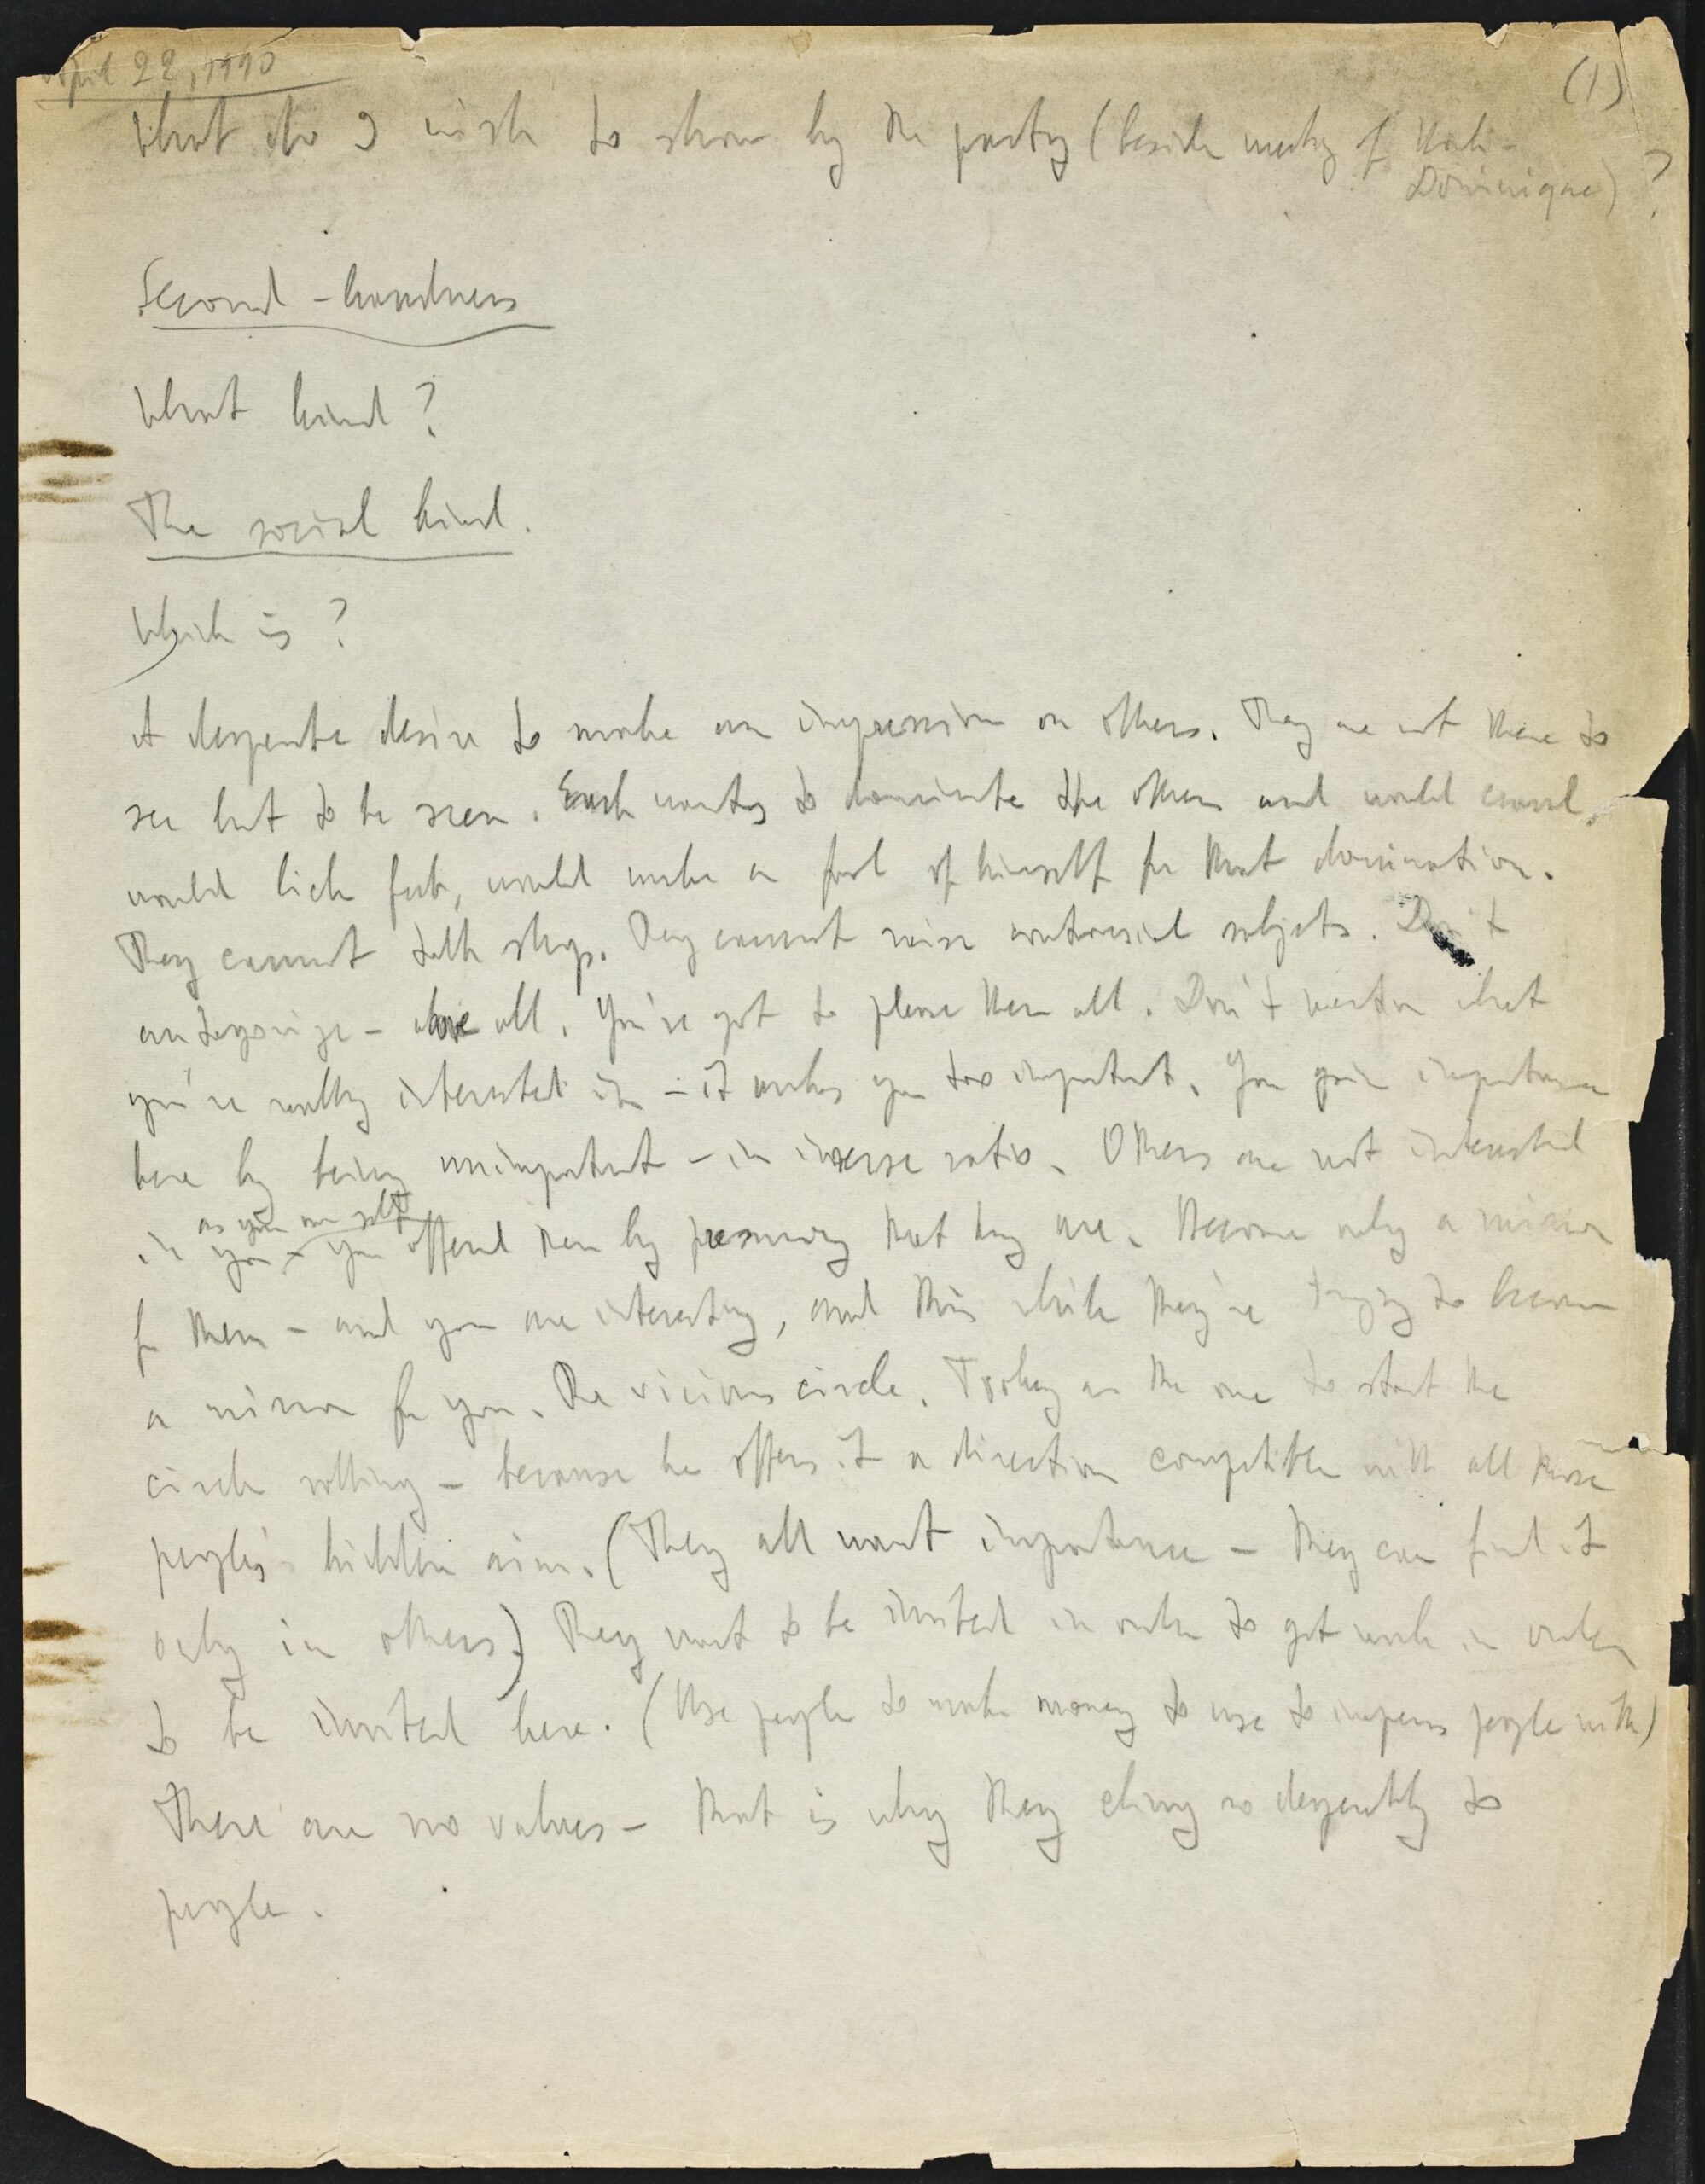 April 22, 1940
(1)
What do I wish to show by the party (beside meeting of Roark-
Dominique)?
Second-handness
What kind?
The social kind.
Which is?
A desperate desire to make an impression on others. They are not there to
see but to be seen. Each wants to dominate the others and would crawl,
would lick feet, would make a fool of himself for that domination.
They cannot talk shop. They cannot raise controversial subjects. Don't
antagonize - above all. You've got to please them all. Don't mention what
you're really interested in - it makes you too important. You gain importance
here by being unimportant - in inverse ratio. Others are not interested
as your own self
in you - you offend them by presuming that they are. Become only a mirror
for them - and you are interesting, and this while they're trying to become
a mirror for you. The vicious circle. Toohey as the one to start the
circle rolling - because he offers it a direction compatible with all those
people's hidden aim. (They all want importance - they can find it
only in others.) They want to be invited in order to get work in order
to be invited here. (Use people to make money to use to impress people with)
There are no values - that is why they cling so desperately to
people.